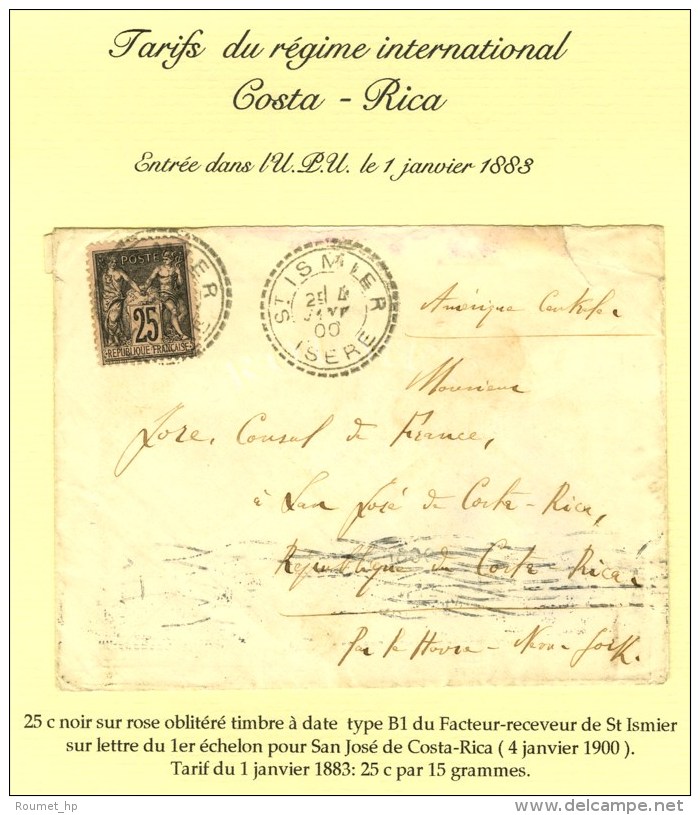 Tarifs du régime international
Costa - Rica
Entrée dans l'U.P.U. le 1 janvier 1883
POSTE
25
RÉPUBLIQUE FRANÇAISE
ST ISMIER
00
ISERE
Amérique Centrale
Monsieur
Jore, Consul de France,
à San José de Costa-Rica,
République de Costa Rica
Par le Havre - New-York.
25 c noir sur rose oblitéré timbre à date type B1 du Facteur-receveur de St Ismier
sur lettre du 1er échelon pour San José de Costa-Rica ( 4 janvier 1900 ).
Tarif du 1 janvier 1883: 25 c par 15 grammes.
Roumet_hp
delcampe.net